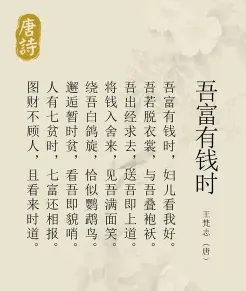 唐詩
吾富有钱时
王梵志（唐）
吾富有钱时，妇儿看我好。
吾若脱衣裳，与吾叠袍袄。
吾出经求去，送吾即上道。
将钱入舍来，见吾满面笑。
绕吾白鸽旋，恰似鹦鹉鸟。
邂逅暂时贫，看吾即貌哨。
人有七贫时，七富还相报。
图财不顾人，且看来时道。